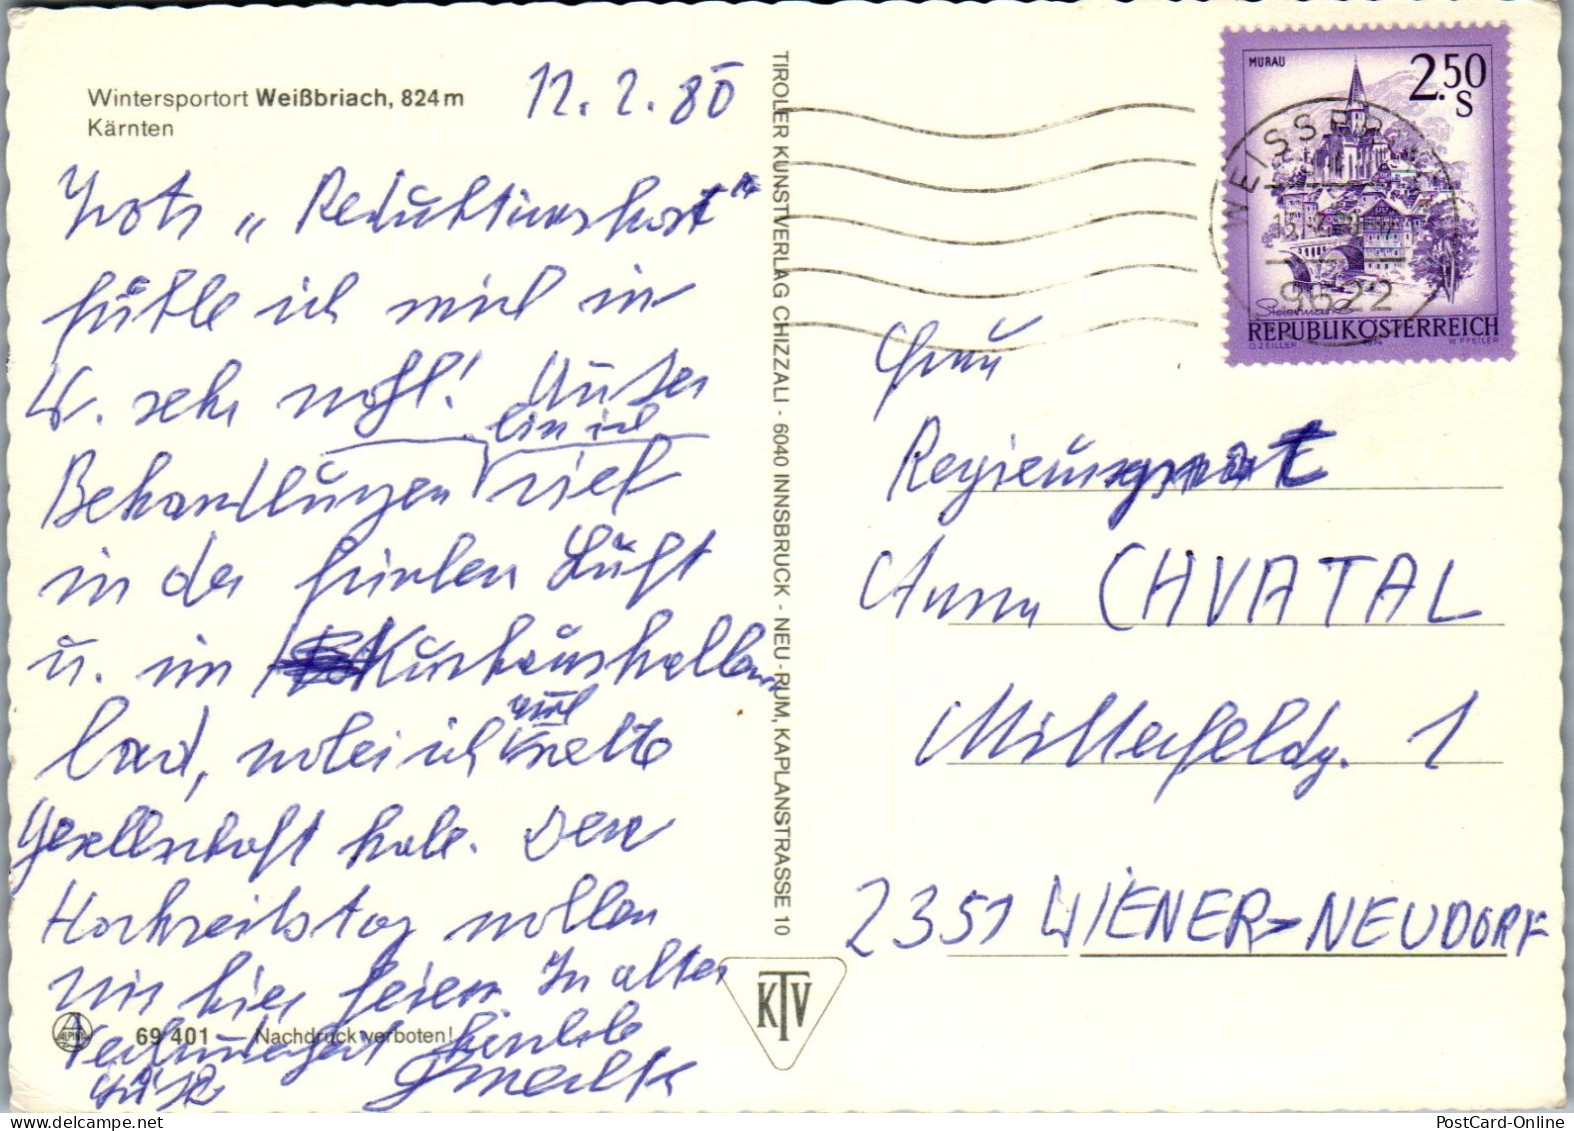 Wintersportort Weißbriach, 824 m
Kärnten
12. 2. 80
Trotz „Reduktionskost"
fühle ich mich in
W. sehr wohl! Unter
bin ich
Behandlungen viel
in der frischen Luft
u. im Kurhaushallen
bad, wobei ich
auch nette
Gesellschaft habe. Den
Hochzeitstag wollen
wir hier feiern. In alter
Verbundenheit herzliche
69 401 Nachdruck verboten!
ALPINA
TIROLER KUNSTVERLAG CHIZZALI - 6040 INNSBRUCK - NEU-RUM, KAPLANSTRASSE 10
KTV
MURAU
2.50
S
Steiermark
REPUBLIK ÖSTERREICH
O. ZEILLER 1974 W. PFEILER
9622
Frau
Regierungsrat
Anna CHVATAL
Mitterfeldg. 1
2351 WIENER-NEUDORF
PostCard-Online